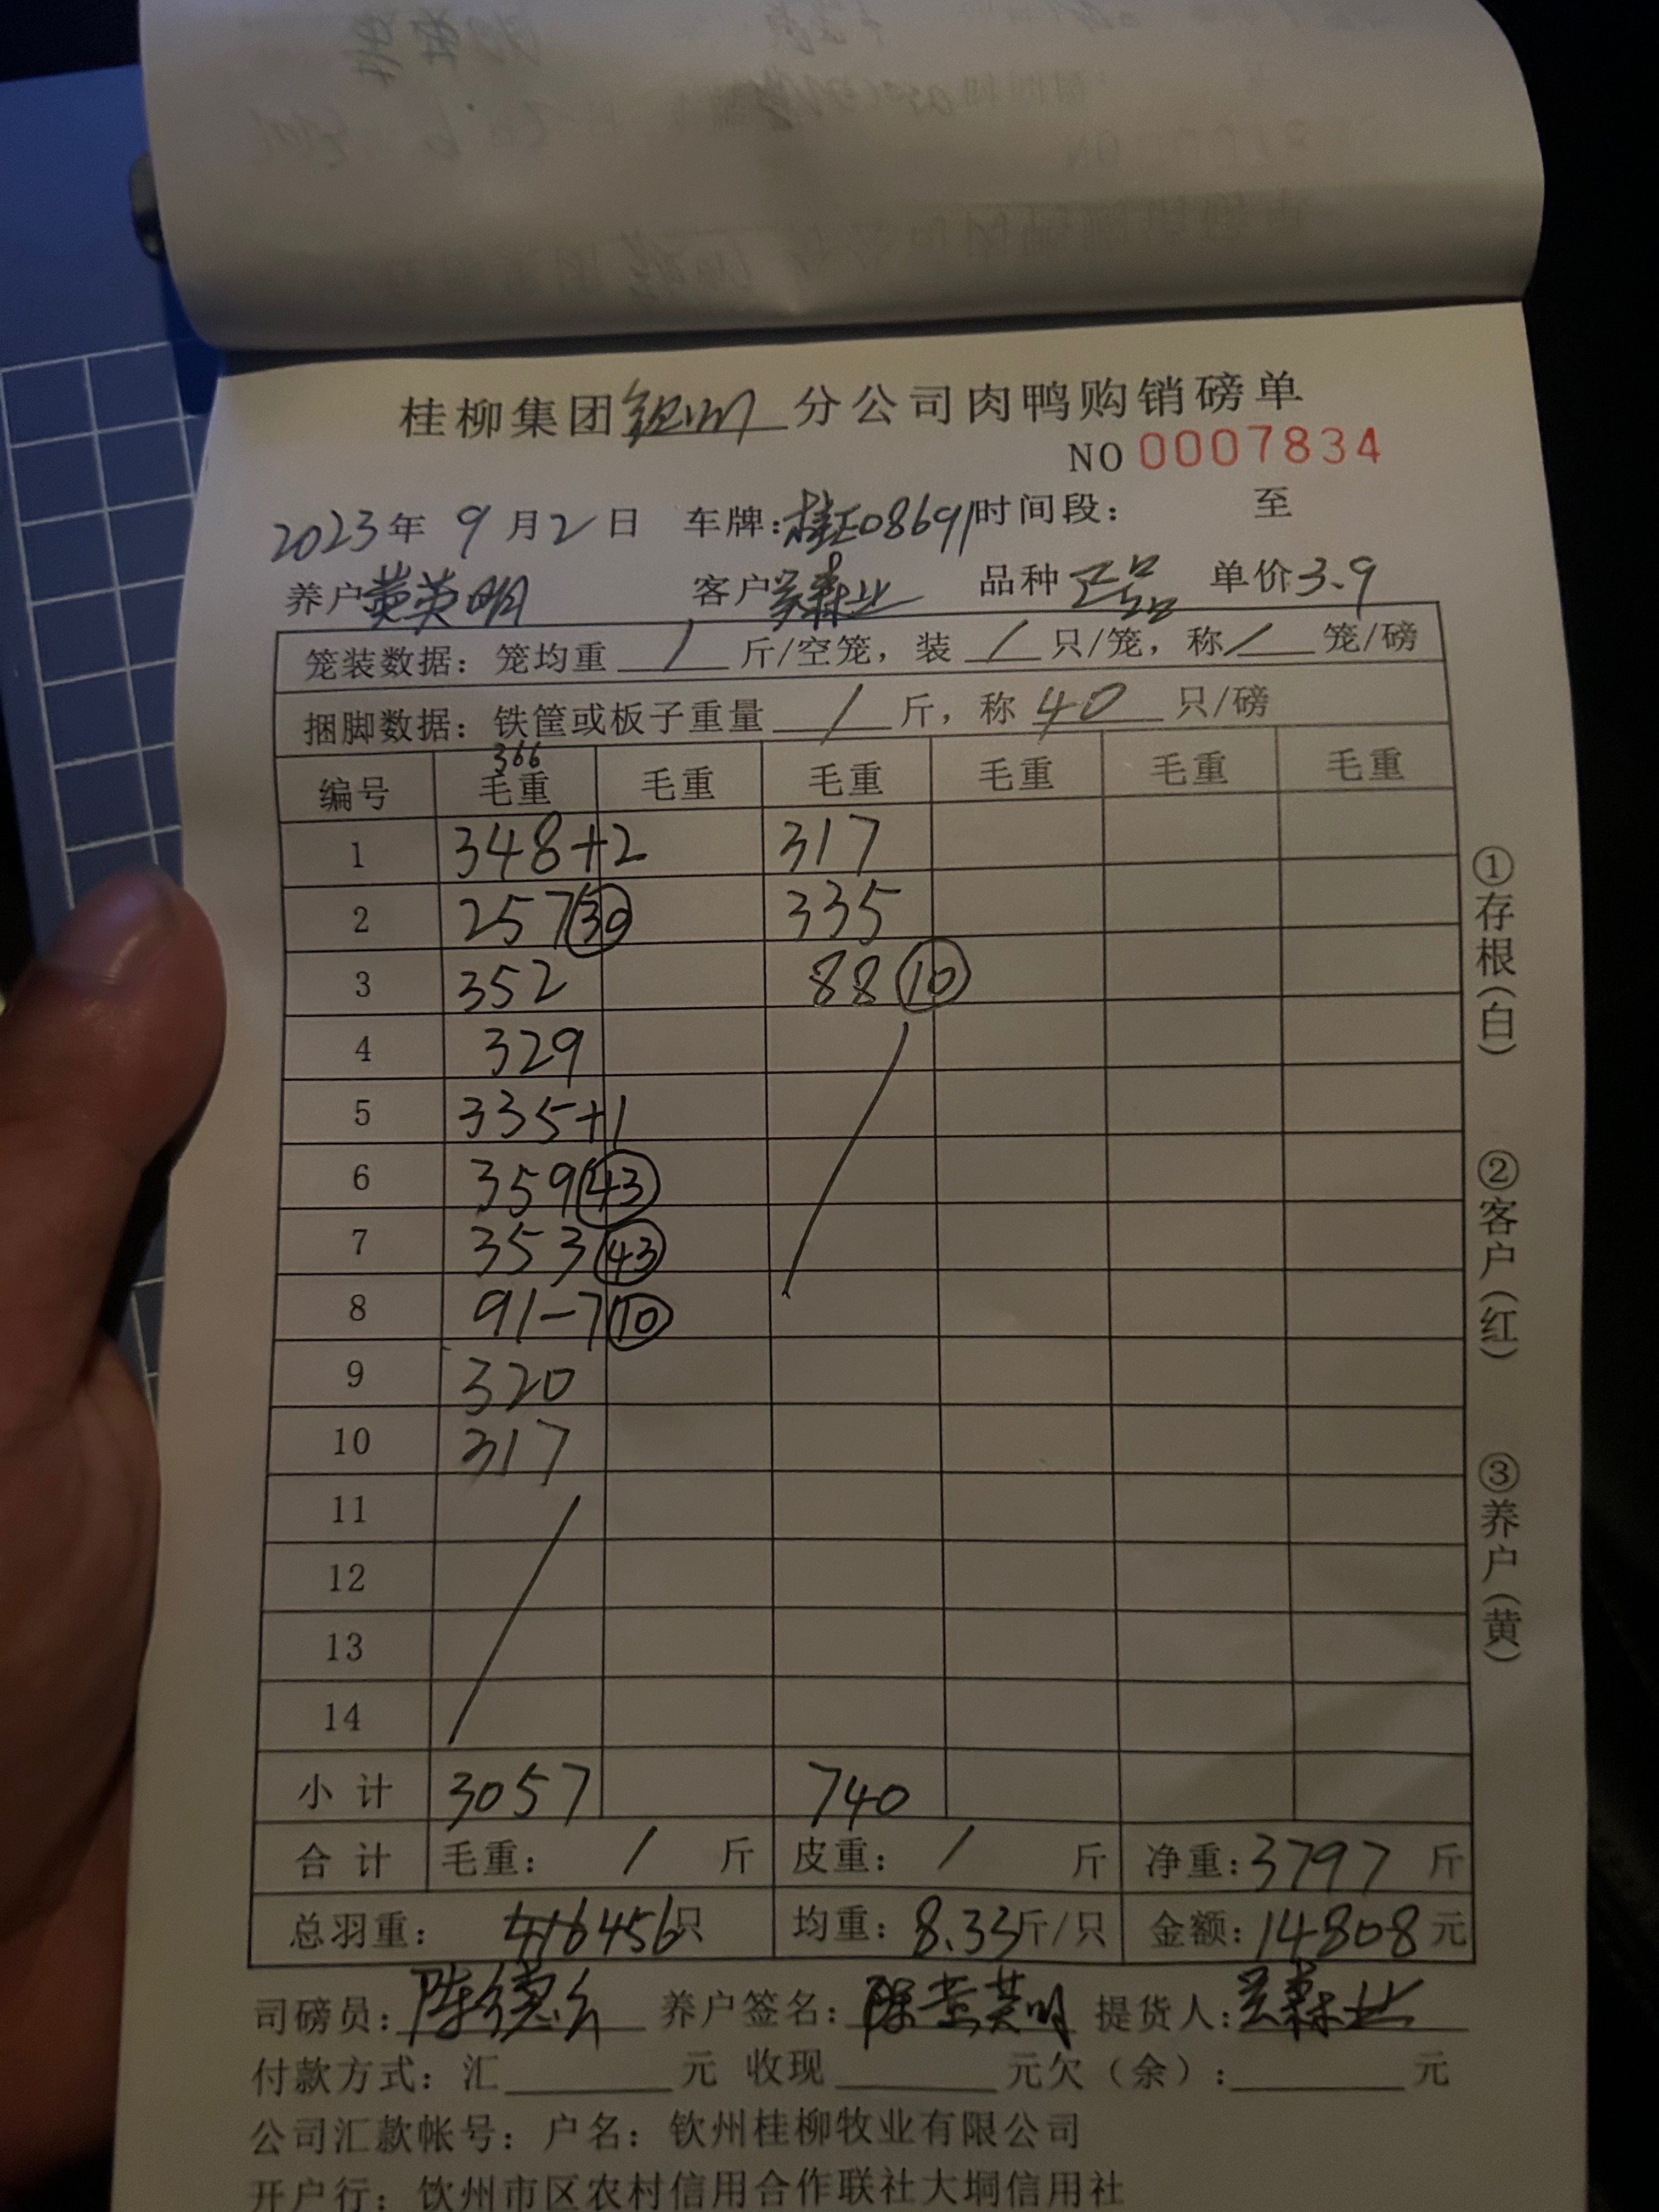 桂柳集团钦州分公司肉鸭购销磅单
NO 0007834
2023年 9月2日 车牌:桂E08691 时间段: 至
养户黄英明 客户吴森业 品种正品 单价3.9
笼装数据: 笼均重 / 斤/空笼, 装 / 只/笼, 称 / 笼/磅
捆脚数据: 铁筐或板子重量 / 斤, 称 40 只/磅
366
编号 毛重 毛重 毛重 毛重 毛重 毛重
1 348+2 317
2 257 30 335
3 352 88 10
4 329
5 335+1
6 359 43
7 353 43
8 91-7 10
9 320
10 317
11
12
13
14
小计 3057 740
合计 毛重: / 斤 皮重: / 斤 净重:3797 斤
总羽重: 456只 均重: 8.33斤/只 金额:14808元
司磅员: 陈德 养户签名: 黄英明 提货人:吴森业
付款方式: 汇 元 收现 元欠(余): 元
公司汇款帐号: 户名: 钦州桂柳牧业有限公司
开户行: 钦州市区农村信用合作联社大垌信用社
①存根(白)
②客户(红)
③养户(黄)